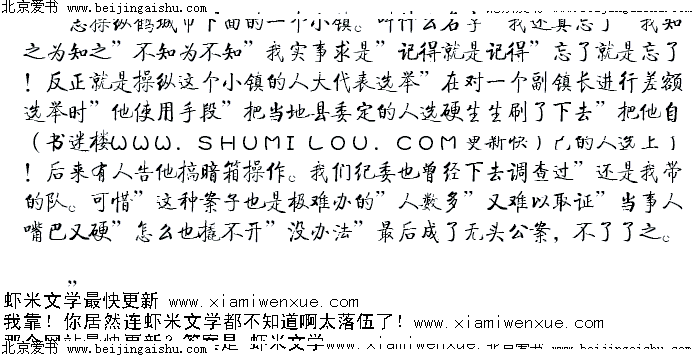 北京爱书 www.beijingaishu.com 北京爱书 www.beijingaishu.com
忘操纵鹤城市下面的一个小镇。叫什么名字”我还真忘了”我知
之为知之”不知为不知”我实事求是”记得就是记得”忘了就是忘了
！反正就是操纵这个小镇的人大代表选举”在对一个副镇长进行差额
选举时”他使用手段”把当地县委定的人选硬生生刷了下去”把他自
（书迷楼ＷＷＷ．ＳＨＵＭＩＬＯＵ．ＣＯＭ更新快）己的人选上了
！后来有人告他搞暗箱操作。我们纪委也曾经下去调查过”还是我带
的队。可惜”这种案子也是极难办的”人数多”又难以取证”当事人
嘴巴又硬”怎么也撬不开”没办法”最后成了无头公案，不了了之。
”
虾米文学最快更新 www.xiamiwenxue.com
我靠！你居然连虾米文学都不知道啊太落伍了！www.xiamiwenxue.com
那个网站最快更新？答案是 虾米文学www.xiamiwenxue.com
北京爱书 www.beijingaishu.com 北京爱书 www.beijingaishu.com